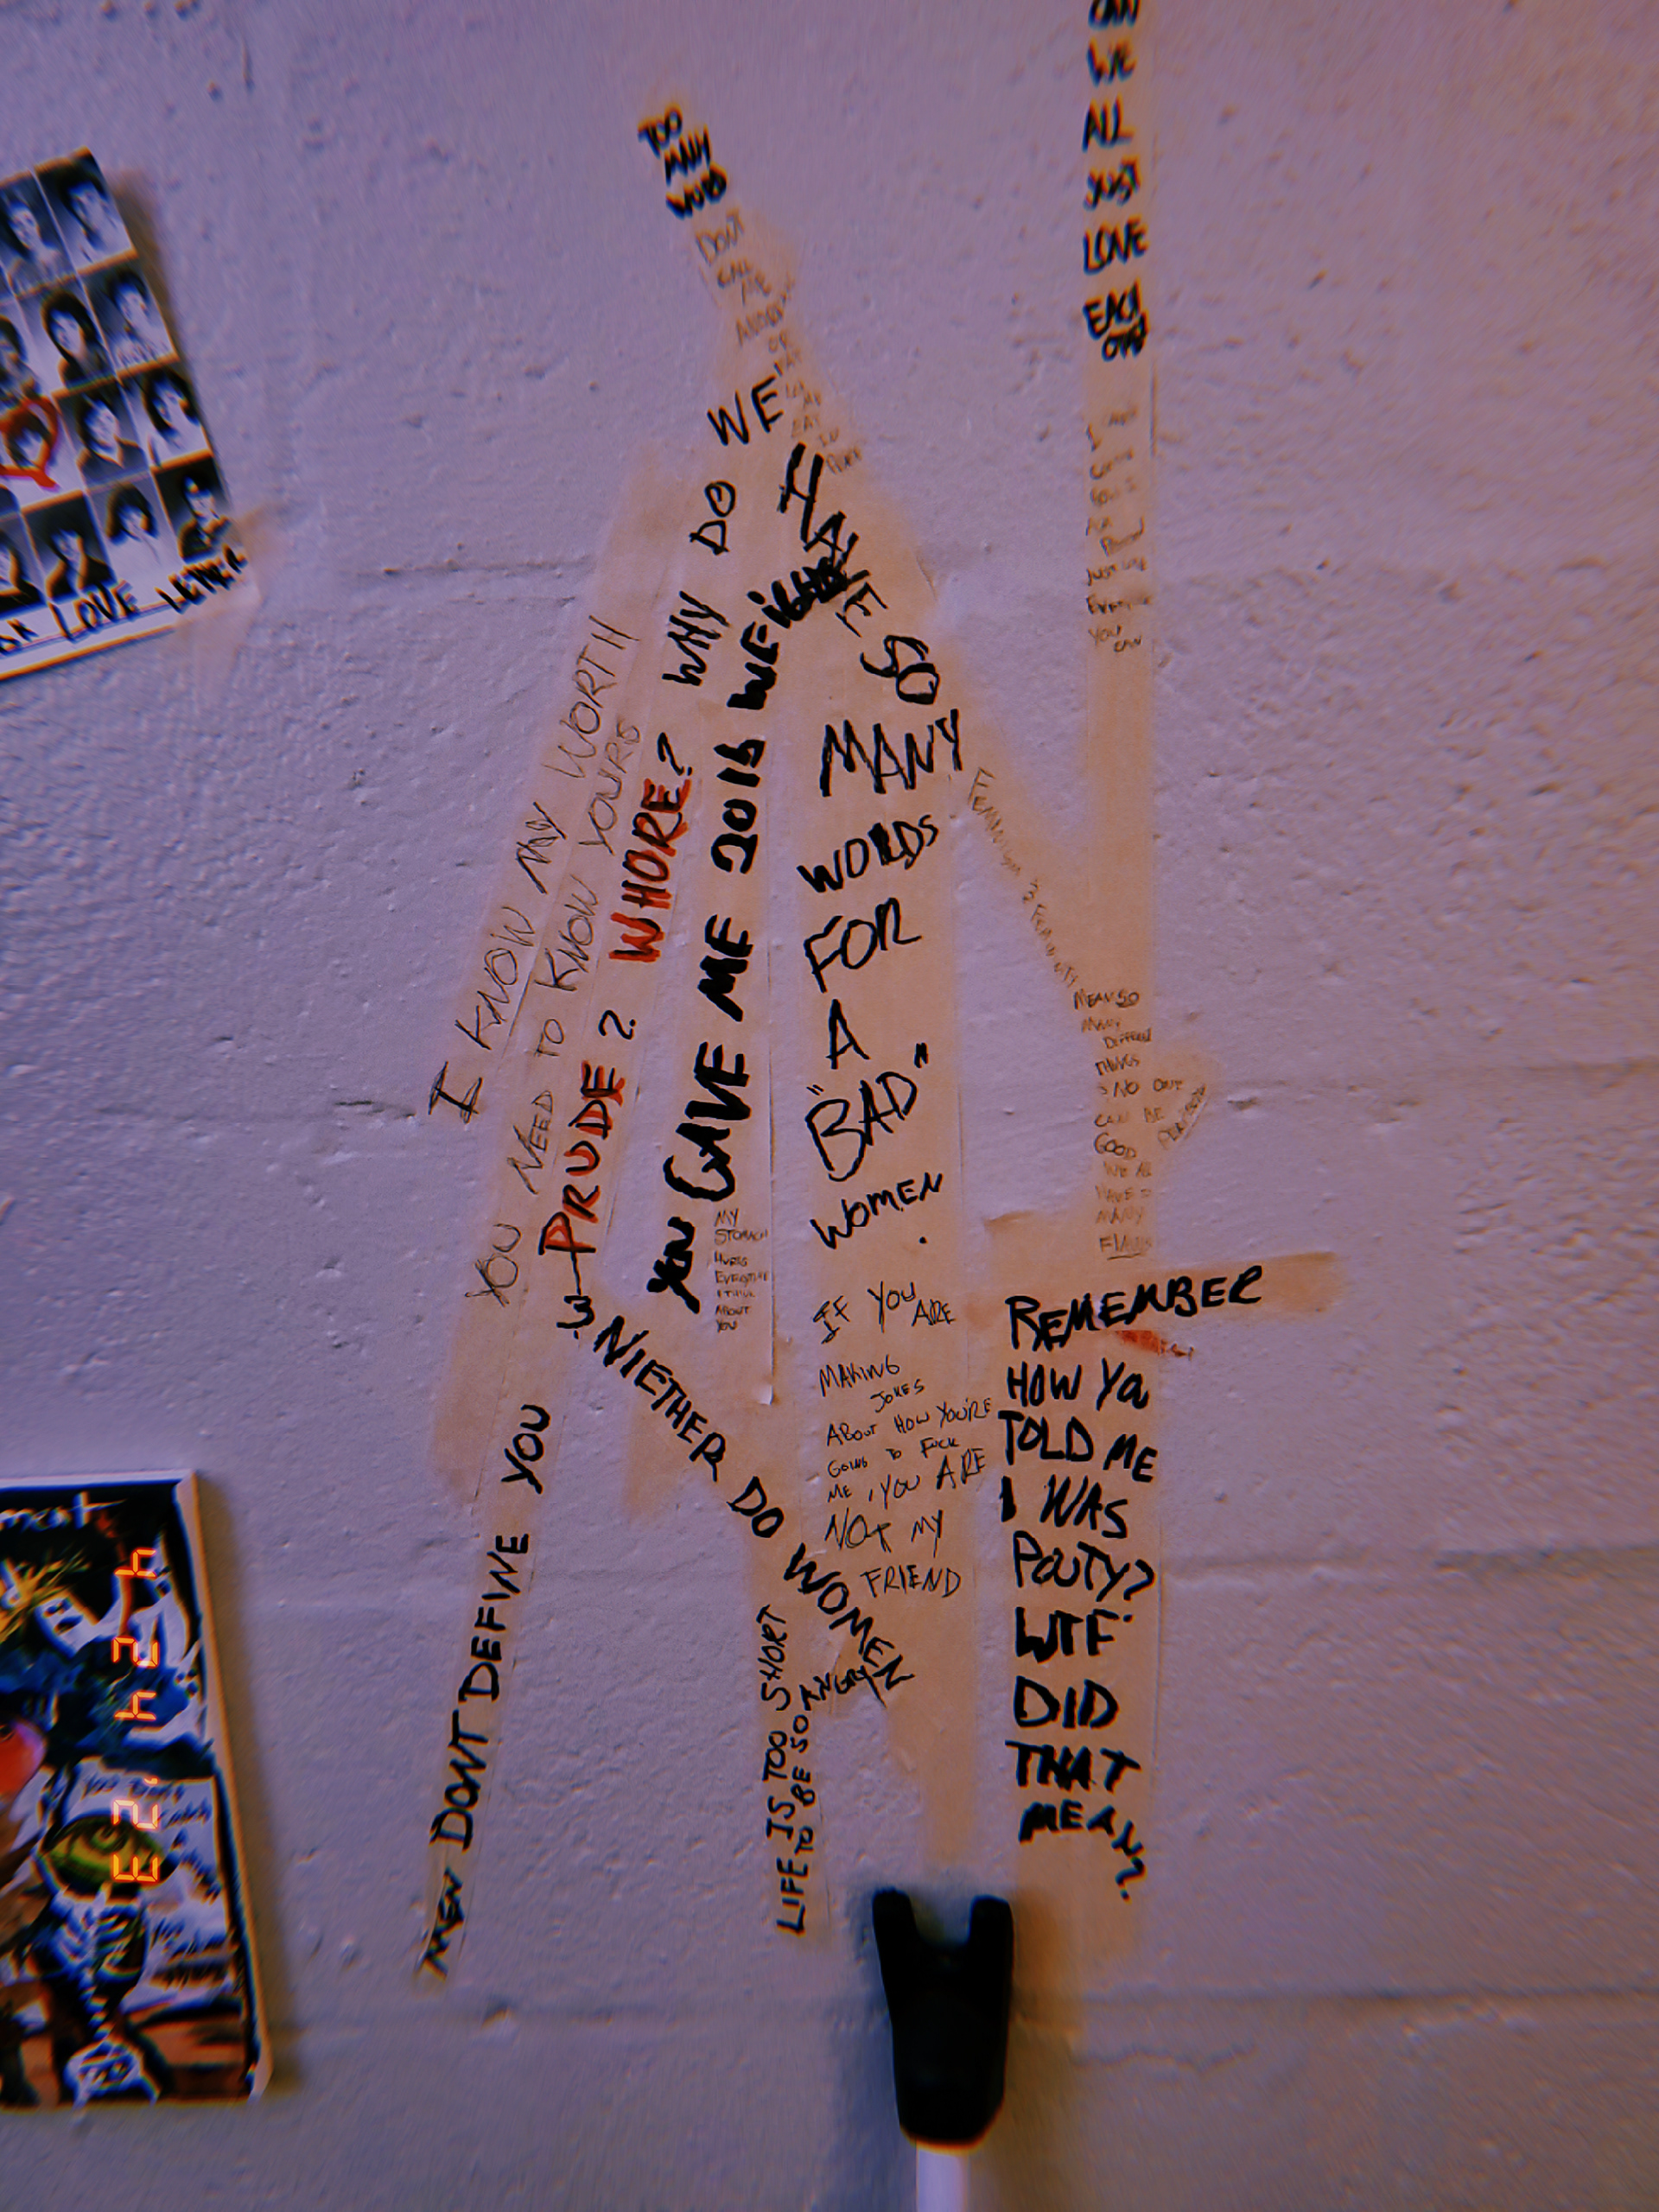 CAN
WE
ALL
JUST
LOVE
EACH
OTHER
TOO
MANY
WORDS
DON'T
CALL ME
I
YOU
CAN
WHY DO WE
HAVE SO
MANY
WORDS
FOR
A
"BAD"
WOMEN.
I KNOW MY WORTH
YOU NEED TO KNOW YOURS
PRUDE? WHORE?
YOU GAVE ME 2016 WEIGHT
MY
STOMACH
HURTS
EVERYTIME
I THINK
ABOUT
YOU
FEMINISM & FEMININITY
MEAN SO
MANY
DIFFERENT
THINGS
NO ONE
CAN BE
GOOD
WE ALL
HAVE
MANY
FLAWS
IF YOU ARE
MAKING
JOKES
ABOUT HOW YOU'RE
GOING TO FUCK
ME, YOU ARE
NOT MY
FRIEND
REMEMBER
HOW YOU
TOLD ME
I WAS
POUTY?
WTF
DID
THAT
MEAN?
MEN DONT DEFINE YOU
NIETHER DO WOMEN
LIFE IS TOO SHORT
TO BE SO ANGRY
LOVE LETTER